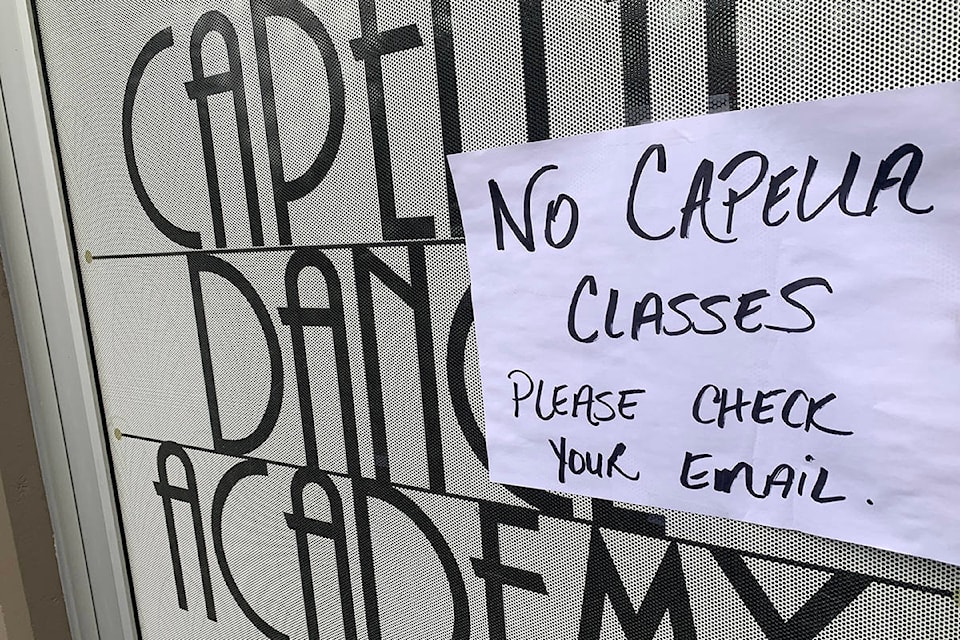 CAPELLA
DANCE
ACADEMY
NO CAPELLA
CLASSES
PLEASE CHECK
YOUR EMAIL.